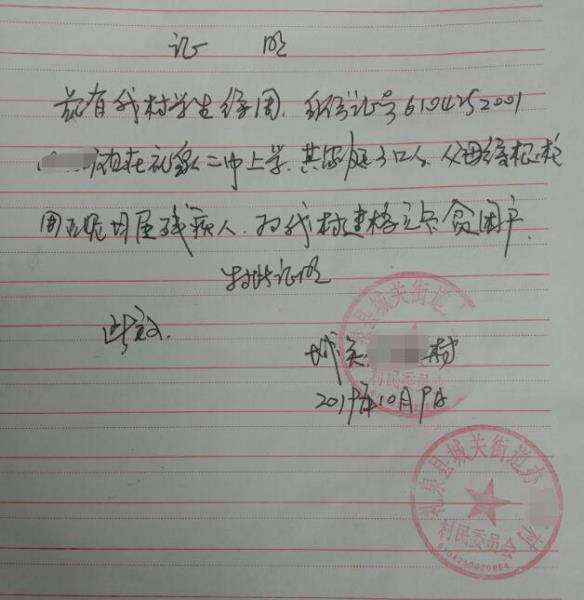 证 明
兹有我村学生 周,身份证号6104252001
现在礼泉二中上学,其家庭3口人,父母
周 均属残疾人,为我村建档立卡贫困户
特此证明
此致
城关 村
2019年10月9日
礼泉县城关街道办 村
村民委员会
泉县城关街道
村民委员会
6104250020864